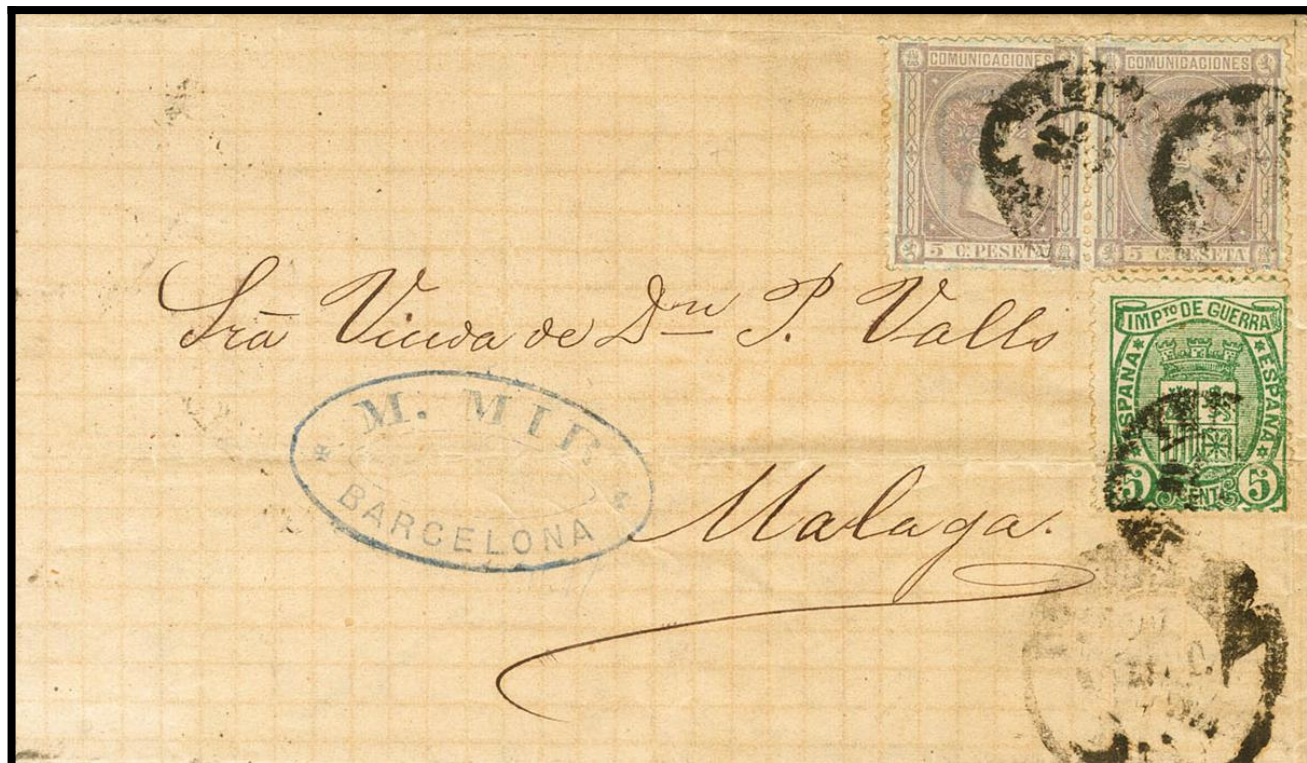 COMUNICACIONES
5 C. PESETA
COMUNICACIONES
5 C. PESETA
Srā Viuda de Dⁿ P. Valls
IMPTO DE GUERRA
ESPAÑA
ESPAÑA
5 CENTS 5
M. MIR
BARCELONA
Malaga.